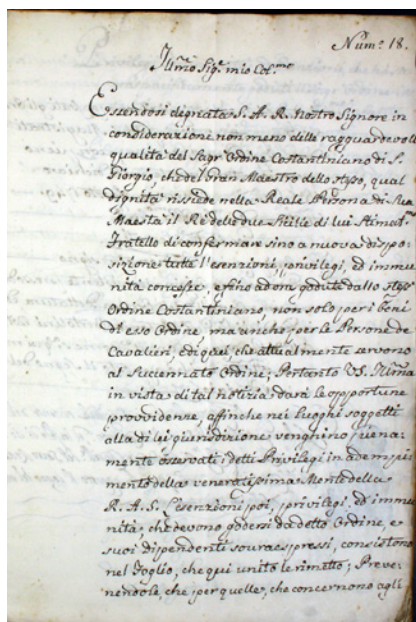 Num.º 18.
Illmo Sig.e mio Col.mo
Essendosi degnata S. A. R. Nostro Signore in
considerazione non meno delle ragguardevoli
qualità del Sagr' Ordine Costantiniano di S.
Giorgio, che del Gran Maestro dello stesso, qual
dignità rissiede nella Reale Persona di Sua
Maestà il Rè delle due Sicilie di lui Stimat.
Fratello di confermare sino a nuova dispo:
sizione tutte l'esenzioni, privilegi, ed immu
nità concesse, e fino ad ora godute dallo stesso
Ordine Costantiniano, non solo per i Beni
di esso Ordine, ma anche per le Persone de
Cavalieri, ed quei, che attualmente servono
al Succennato Ordine; Pertanto VS. Illma
in vista di tal notizia darà le opportune
providenze, affinche nei luoghi soggetti
alla di lei giurisdizione venghino piena:
mente osservati detti Privilegi in adempi
mento della veneratissima Mente della
R. A. S. L'esenzioni poi, privilegi, ed immu
nità, che devono godersi da detto Ordine, e
suoi dipendenti souraespressi, consistono
nel Foglio, che qui unito le rimetto; Preve:
nendole, che per quelle, che concernono agli